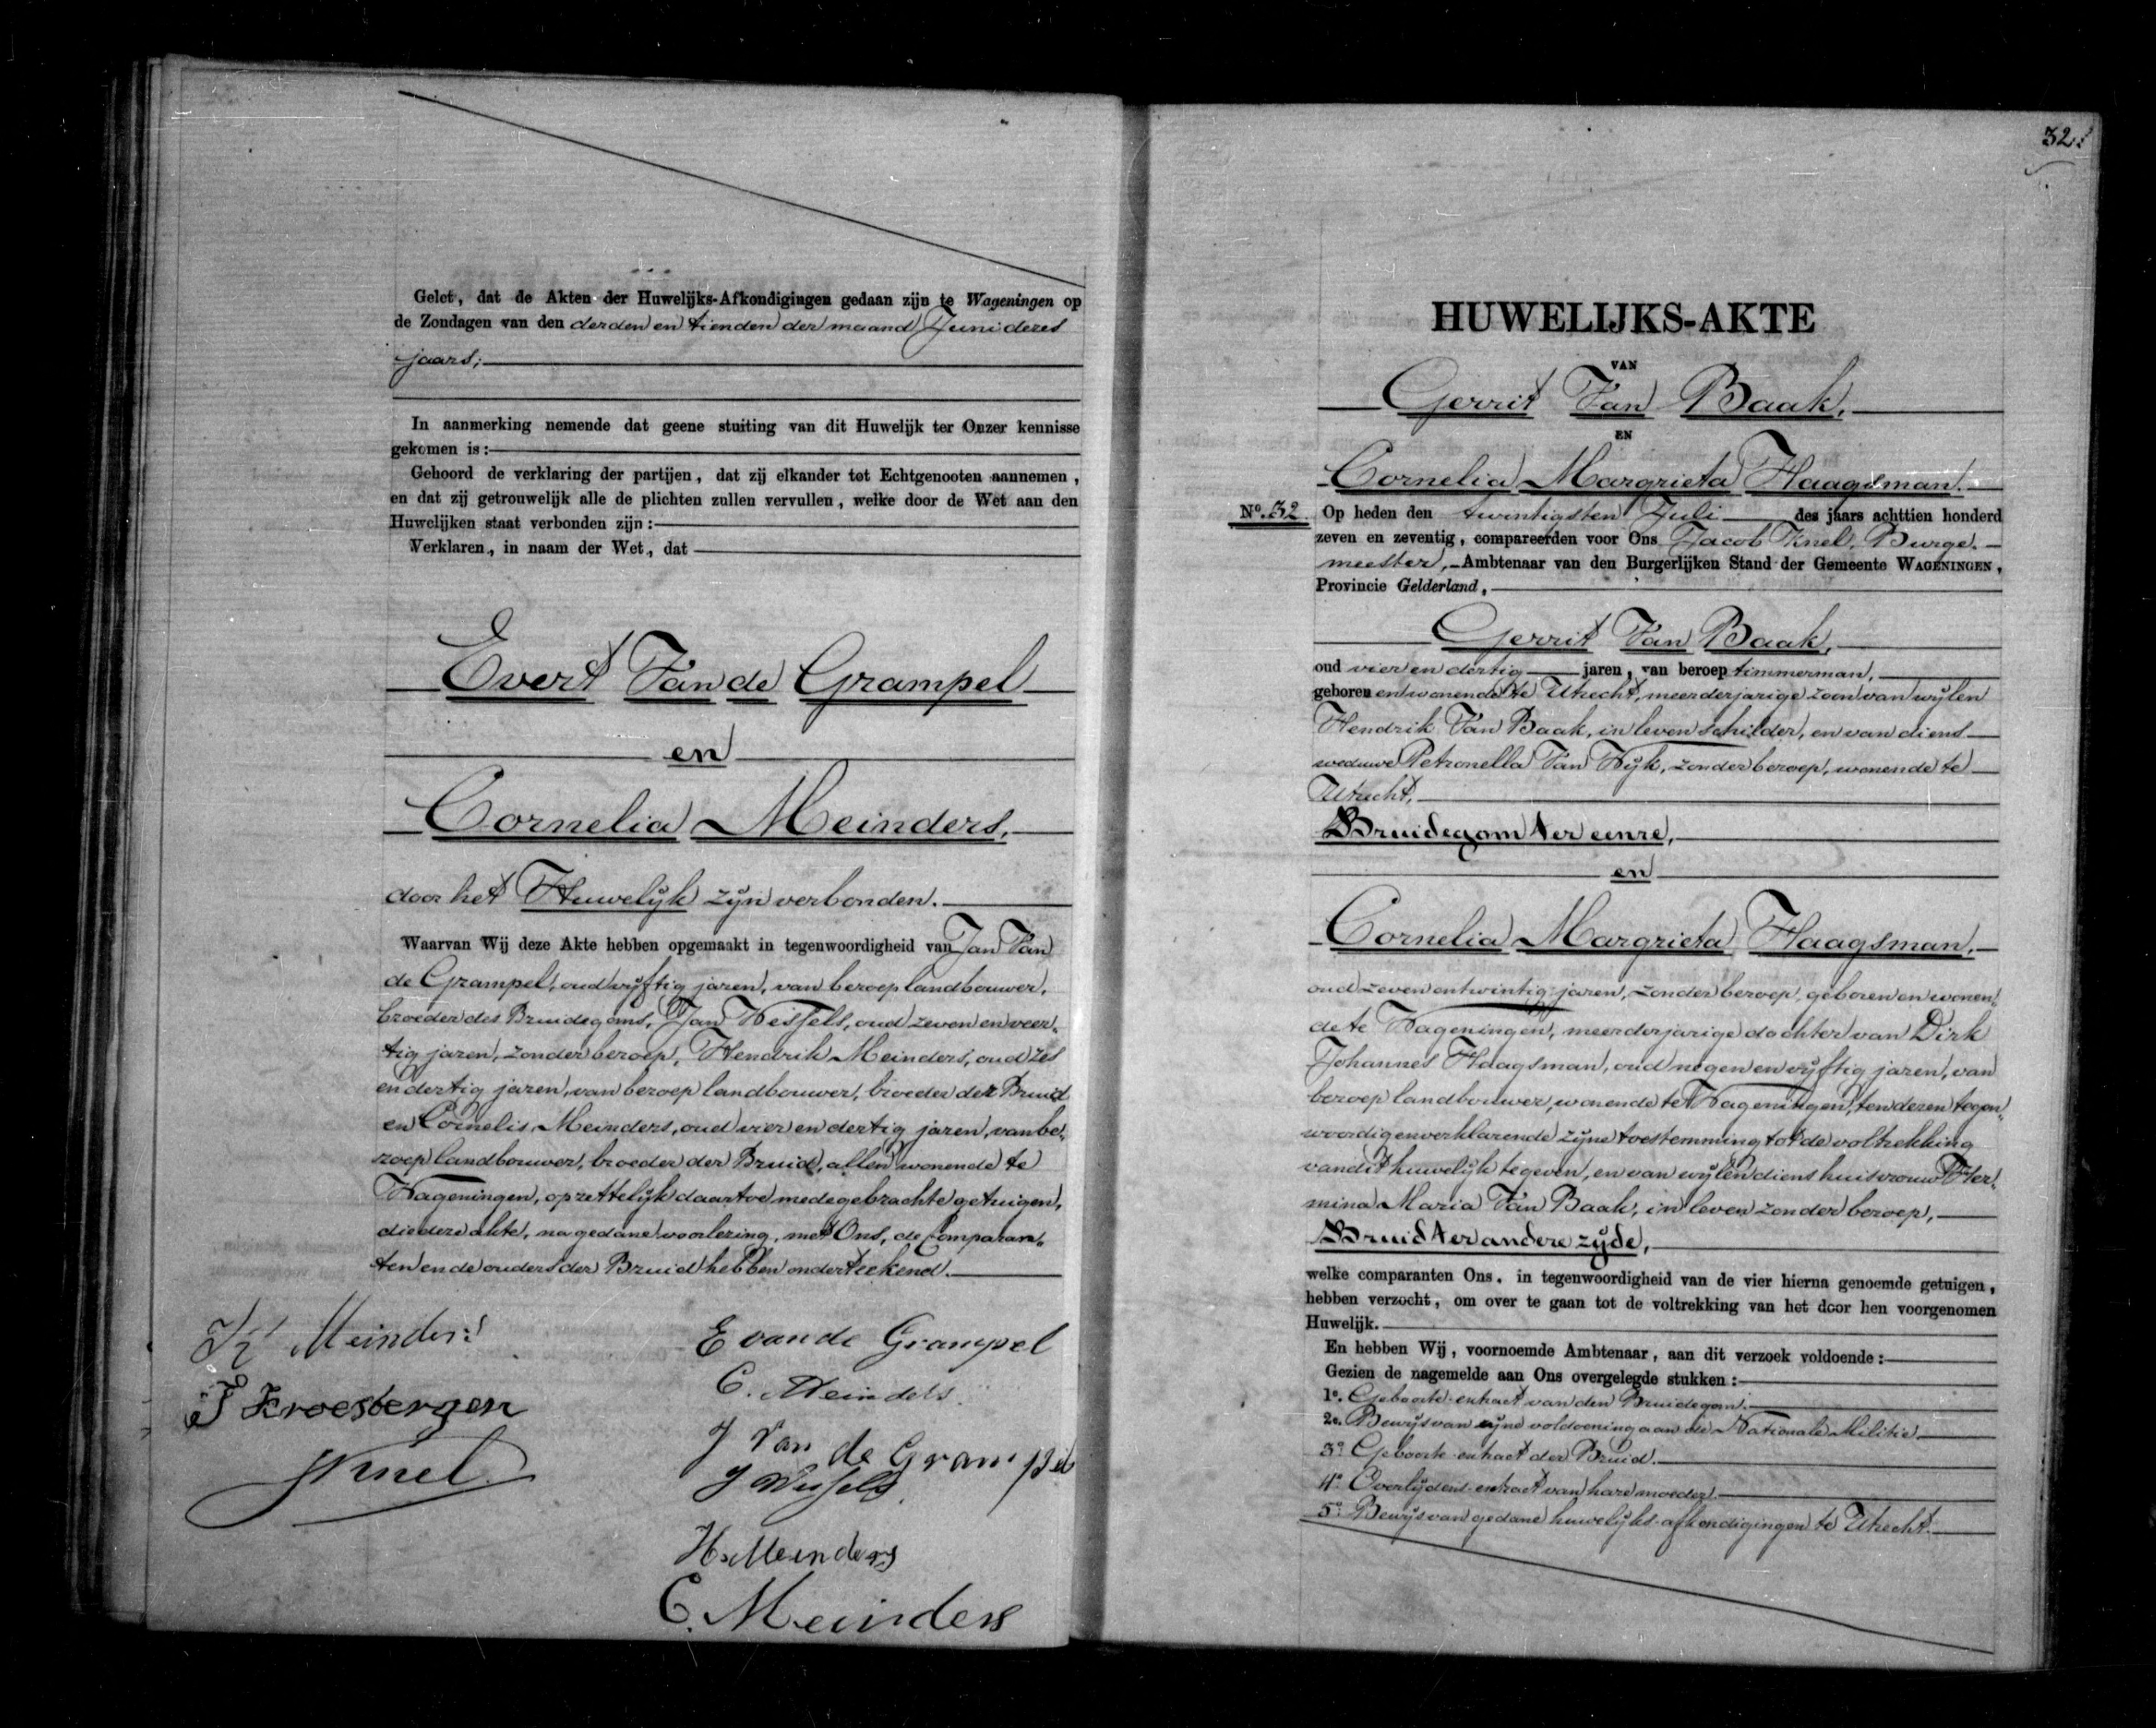 Gelet, dat de Akten der Huwelijks-Afkondigingen gedaan zijn te Wageningen op
de Zondagen van den derden en tienden der maand Juni dezes
jaars;
In aanmerking nemende dat geene stuiting van dit Huwelijk ter Onzer kennisse
gekomen is:
Gehoord de verklaring der partijen, dat zij elkander tot Echtgenooten aannemen,
en dat zij getrouwelijk alle de plichten zullen vervullen, welke door de Wet aan den
Huwelijken staat verbonden zijn:
Verklaren, in naam der Wet, dat
Evert Van de Grampel
en
Cornelia Meinders,
door het Huwelijk zijn verbonden.
Waarvan Wij deze Akte hebben opgemaakt in tegenwoordigheid van Jan Van
de Grampel, oud vijftig jaren, van beroep landbouwer,
broeder des Bruidegoms, Jan Wessels, oud zeven en veer-
tig jaren, zonder beroep, Hendrik Meinders, oud zes
en dertig jaren, van beroep landbouwer, broeder der Bruid
en Cornelis Meinders, oud vier en dertig jaren, van be-
roep landbouwer, broeder der Bruid, allen wonende te
Wageningen, opzettelijk daartoe medegebrachte getuigen,
die deze akte, na gedane voorlezing, met Ons, de Comparan-
ten en de ouders der Bruid hebben onderteekend.
Meinders
E van de Grampel
C. Meinders
Kroesbergen
J Van de Grampel
J Wessels
JKnel
H Meinders
C. Meinders
32
HUWELIJKS-AKTE
VAN
Gerrit Van Baak,
EN
Cornelia Margrieta Haagsman.
No. 32. Op heden den twintigsten Juli des jaars achttien honderd
zeven en zeventig, compareerden voor Ons Jacob Knel, Burge-
meester, Ambtenaar van den Burgerlijken Stand der Gemeente WAGENINGEN,
Provincie Gelderland,
Gerrit Van Baak,
oud vier en dertig jaren, van beroep timmerman,
geboren en wonende te Utrecht, meerderjarige zoon van wijlen
Hendrik Van Baak, in leven schilder, en van diens
weduwe Petronella Van Wijk, zonder beroep, wonende te
Utrecht,
Bruidegom ter eenre,
en
Cornelia Margrieta Haagsman,
oud zeven en twintig jaren, zonder beroep, geboren en wonen-
de te Wageningen, meerderjarige dochter van Dirk
Johannes Haagsman, oud negen en vijftig jaren, van
beroep landbouwer, wonende te Wageningen, ten dezen tegen-
woordig en verklarende zijne toestemming tot de voltrekking
van dit huwelijk te geven, en van wijlen diens huisvrouw Her-
mina Maria Van Baak, in leven zonder beroep,
Bruid ter andere zijde,
welke comparanten Ons, in tegenwoordigheid van de vier hierna genoemde getuigen,
hebben verzocht, om over te gaan tot de voltrekking van het door hen voorgenomen
Huwelijk.
En hebben Wij, voornoemde Ambtenaar, aan dit verzoek voldoende:
Gezien de nagemelde aan Ons overgelegde stukken:
1o. Geboorte-extract van den Bruidegom.
2o. Bewijs van zijne voldoening aan de Nationale Militie.
3o. Geboorte-extract der Bruid.
4o. Overlijdens-extract van hare moeder.
5o. Bewijs van gedane huwelijks-afkondigingen te Utrecht.